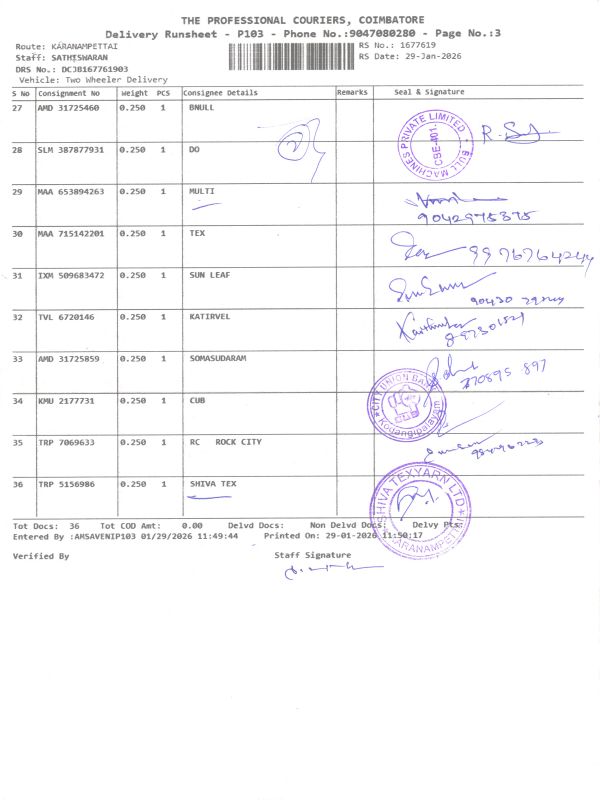 THE PROFESSIONAL COURIERS, COIMBATORE
Delivery Runsheet - P103 - Phone No.:9047080280 - Page No.:3
Route: KARANAMPETTAI RS No.: 1677619
Staff: SATHISWARAN RS Date: 29-Jan-2026
DRS No.: DCJB167761903
Vehicle: Two Wheeler Delivery
S No Consignment No Weight PCS Consignee Details Remarks Seal & Signature
27 AMD 31725460 0.250 1 BNULL
BULL MACHINES PRIVATE LIMITED CBE-401.
28 SLM 387877931 0.250 1 DO
29 MAA 653894263 0.250 1 MULTI
9042975375
30 MAA 715142201 0.250 1 TEX
9976764244
31 IXM 509683472 0.250 1 SUN LEAF
32 TVL 6720146 0.250 1 KATIRVEL
33 AMD 31725859 0.250 1 SOMASUDARAM
34 KMU 2177731 0.250 1 CUB
CITY UNION BANK Kodangipalayam
35 TRP 7069633 0.250 1 RC ROCK CITY
36 TRP 5156986 0.250 1 SHIVA TEX
SHIVA TEXYARN LTD KARANAMPETTAI
Tot Docs: 36 Tot COD Amt: 0.00 Delvd Docs: Non Delvd Docs: Delvy Pts:
Entered By :AMSAVENIP103 01/29/2026 11:49:44 Printed On: 29-01-2026 11:50:17
Verified By Staff Signature